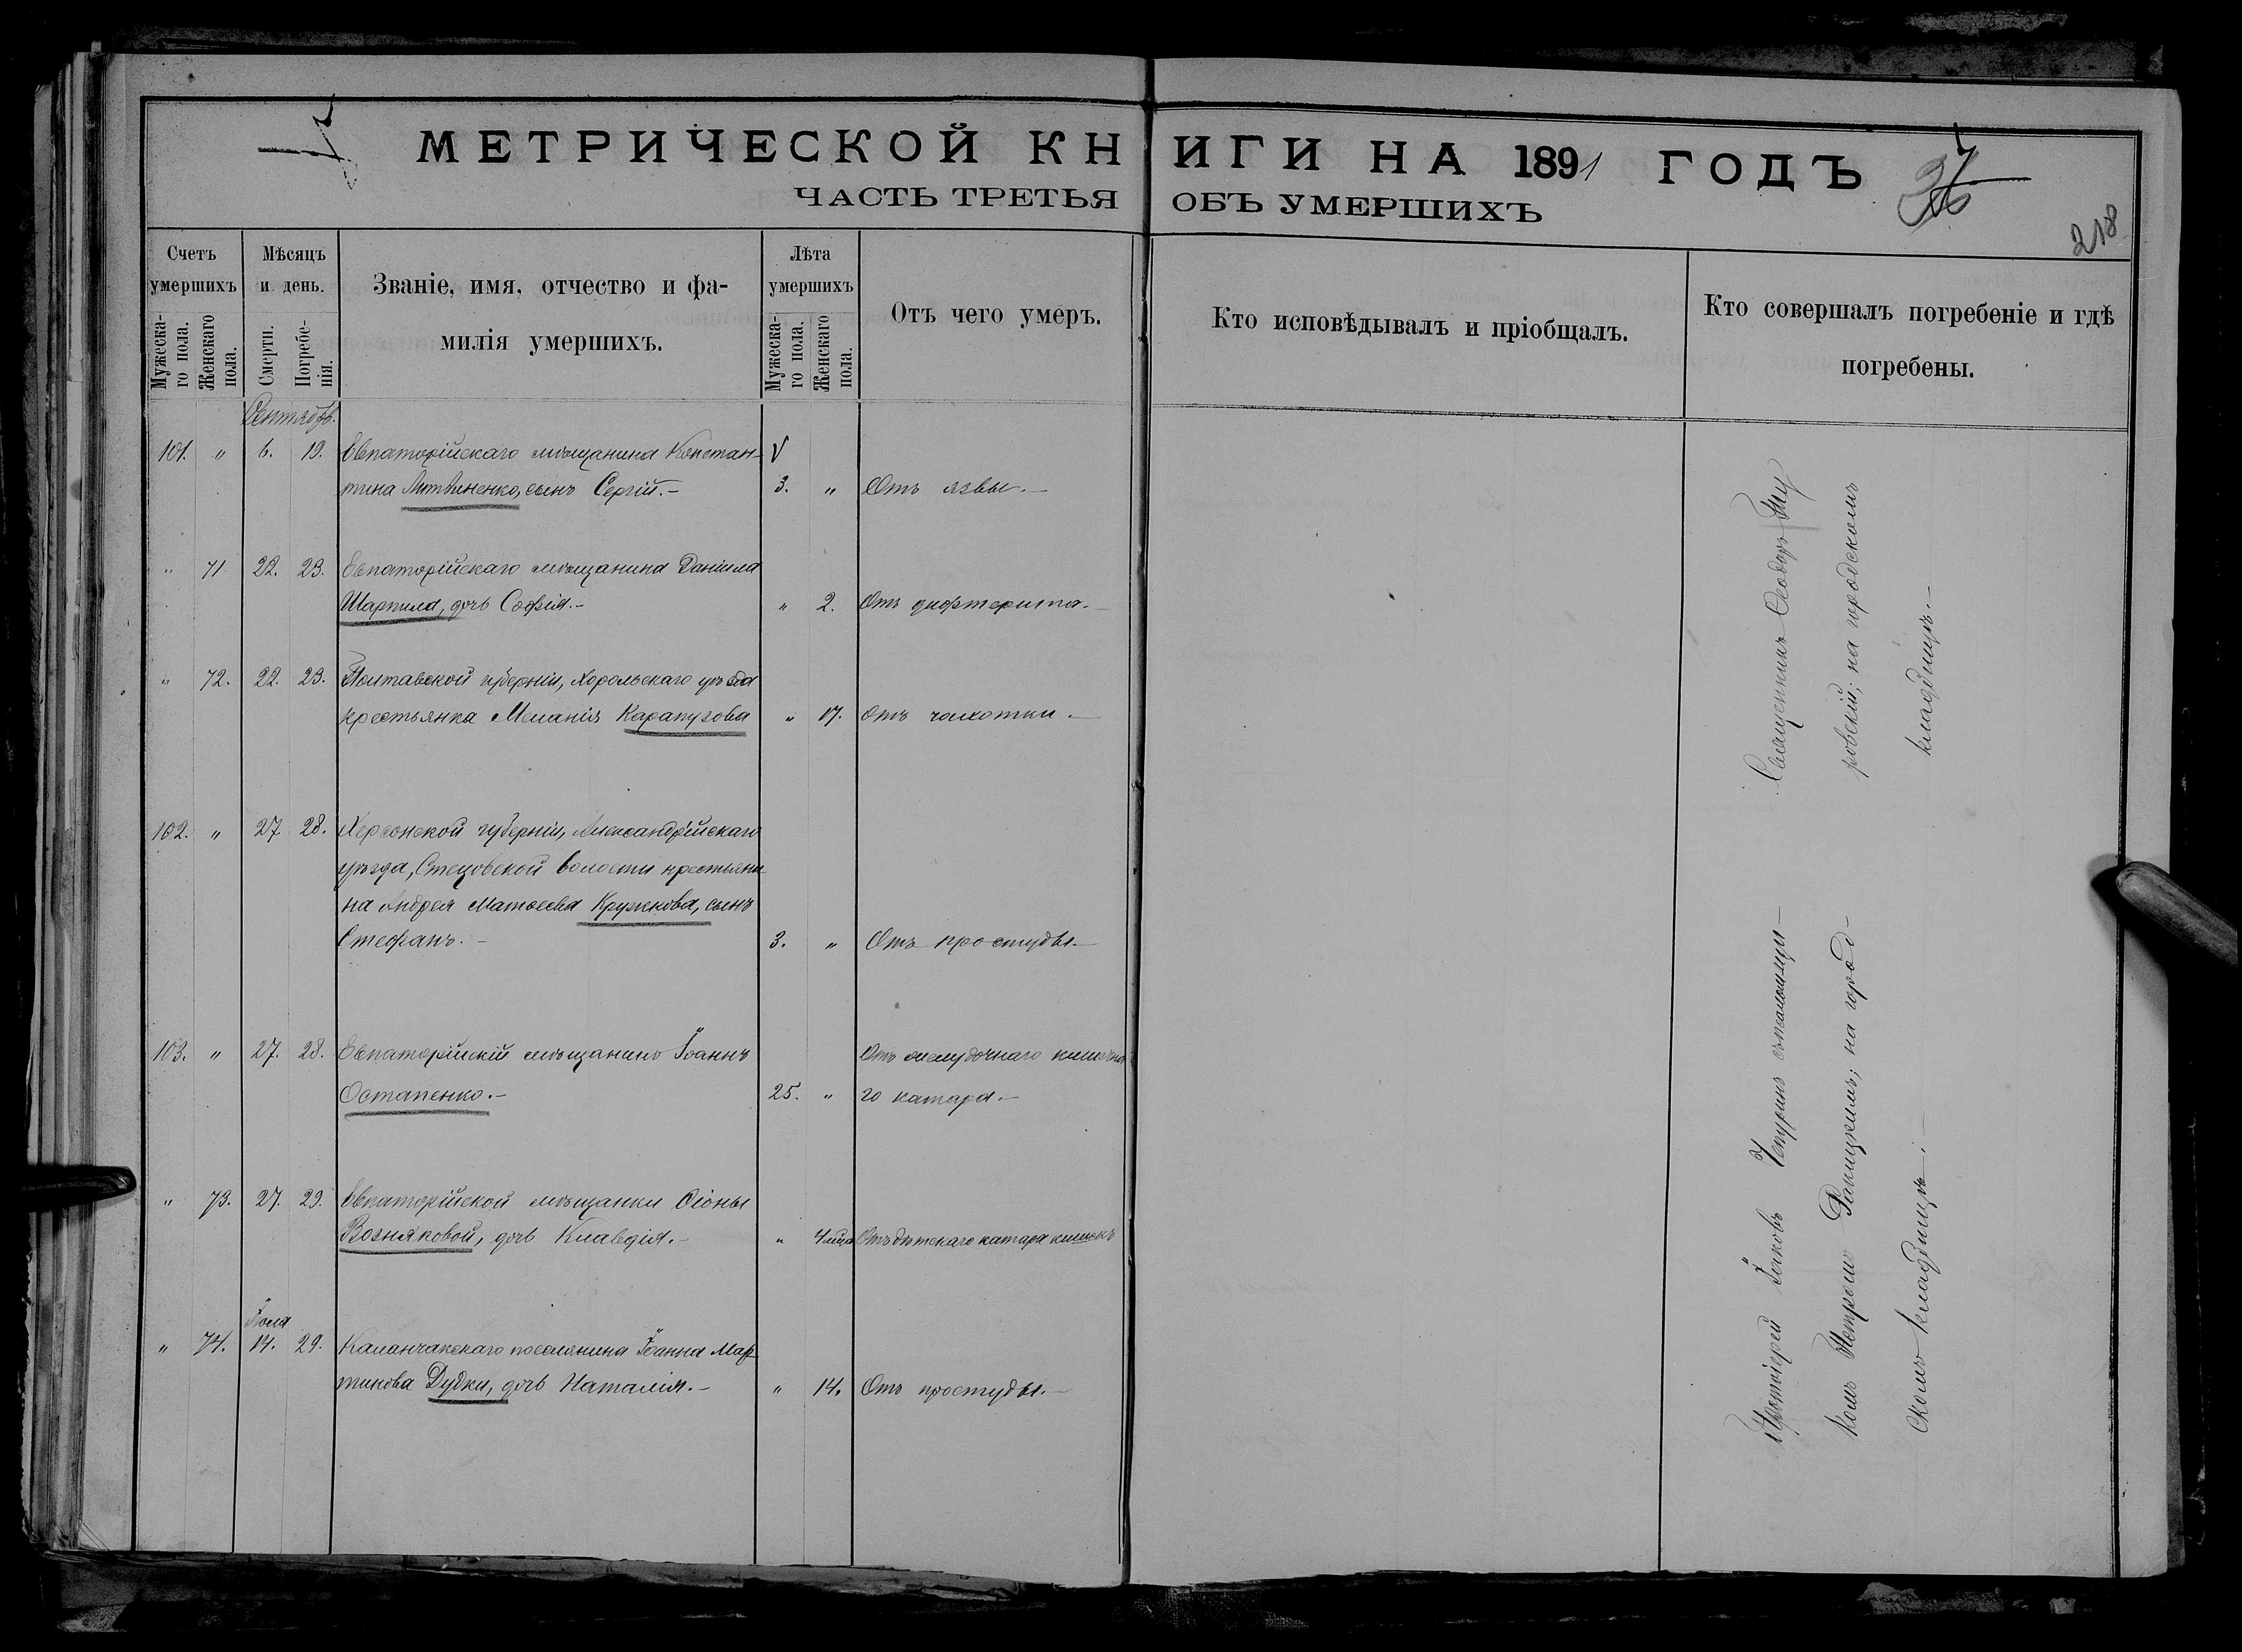 МЕТРИЧЕСКОЙ КНИГИ НА 1891 ГОДЪ
ЧАСТЬ ТРЕТЬЯ ОБЪ УМЕРШИХЪ
218
Счетъ умершихъ
Мѣсяцъ и день.
Званіе, имя, отчество и фа-
милія умершихъ.
Лѣта умершихъ
Отъ чего умеръ.
Кто исповѣдывалъ и пріобщалъ.
Кто совершалъ погребеніе и гдѣ
погребены.
Мужеска-
го пола.
Женскаго
пола.
Смерти.
Погребе-
нія.
Мужеска-
го пола.
Женскаго
пола.
Сентябрь.
101. " 6. 19. Евпаторійскаго мѣщанина Констан-
тина Литвиненко, сынъ Сергій.- 3. " Отъ язвы.-
" 71 22. 23. Евпаторійскаго мѣщанина Даніила
Шарпила, дочь Софія.- " 2. Отъ дифтерита.-
" 72. 22. 23. Полтавской губерніи, Хорольскаго уѣзда
крестьянка Меланія Карапузова " 17. Отъ чахотки.-
102. " 27 28. Херсонской губерніи, Александрійскаго
уѣзда, Стецовской волости крестьяни-
на Андрея Матѳеева Кружкова, сынъ
Стефанъ.- 3. " Отъ простуды.-
103. " 27. 28. Евпаторійскій мѣщанинъ Іоаннъ Отъ желудочнаго кишечна
Остапенко.- 25. " го катара.-
" 73. 27. 29. Евпаторійской мѣщанки
Возняковой, дочь Клавдія.- " Отъ дѣтскаго катара кишекъ
Іюля
" 74. 14. 29. Каланчакскаго поселянина Іоанна Мар-
тинова Дудки, дочь Наталія.- " 14. Отъ простуды.-
Священникъ Ѳеодоръ
ровскій; на городскомъ
кладбищѣ.-
Протоіерей Іаковъ Чепуринъ съ псаломщи-
комъ Петромъ Ракицкимъ; на город-
скомъ кладбищѣ.-